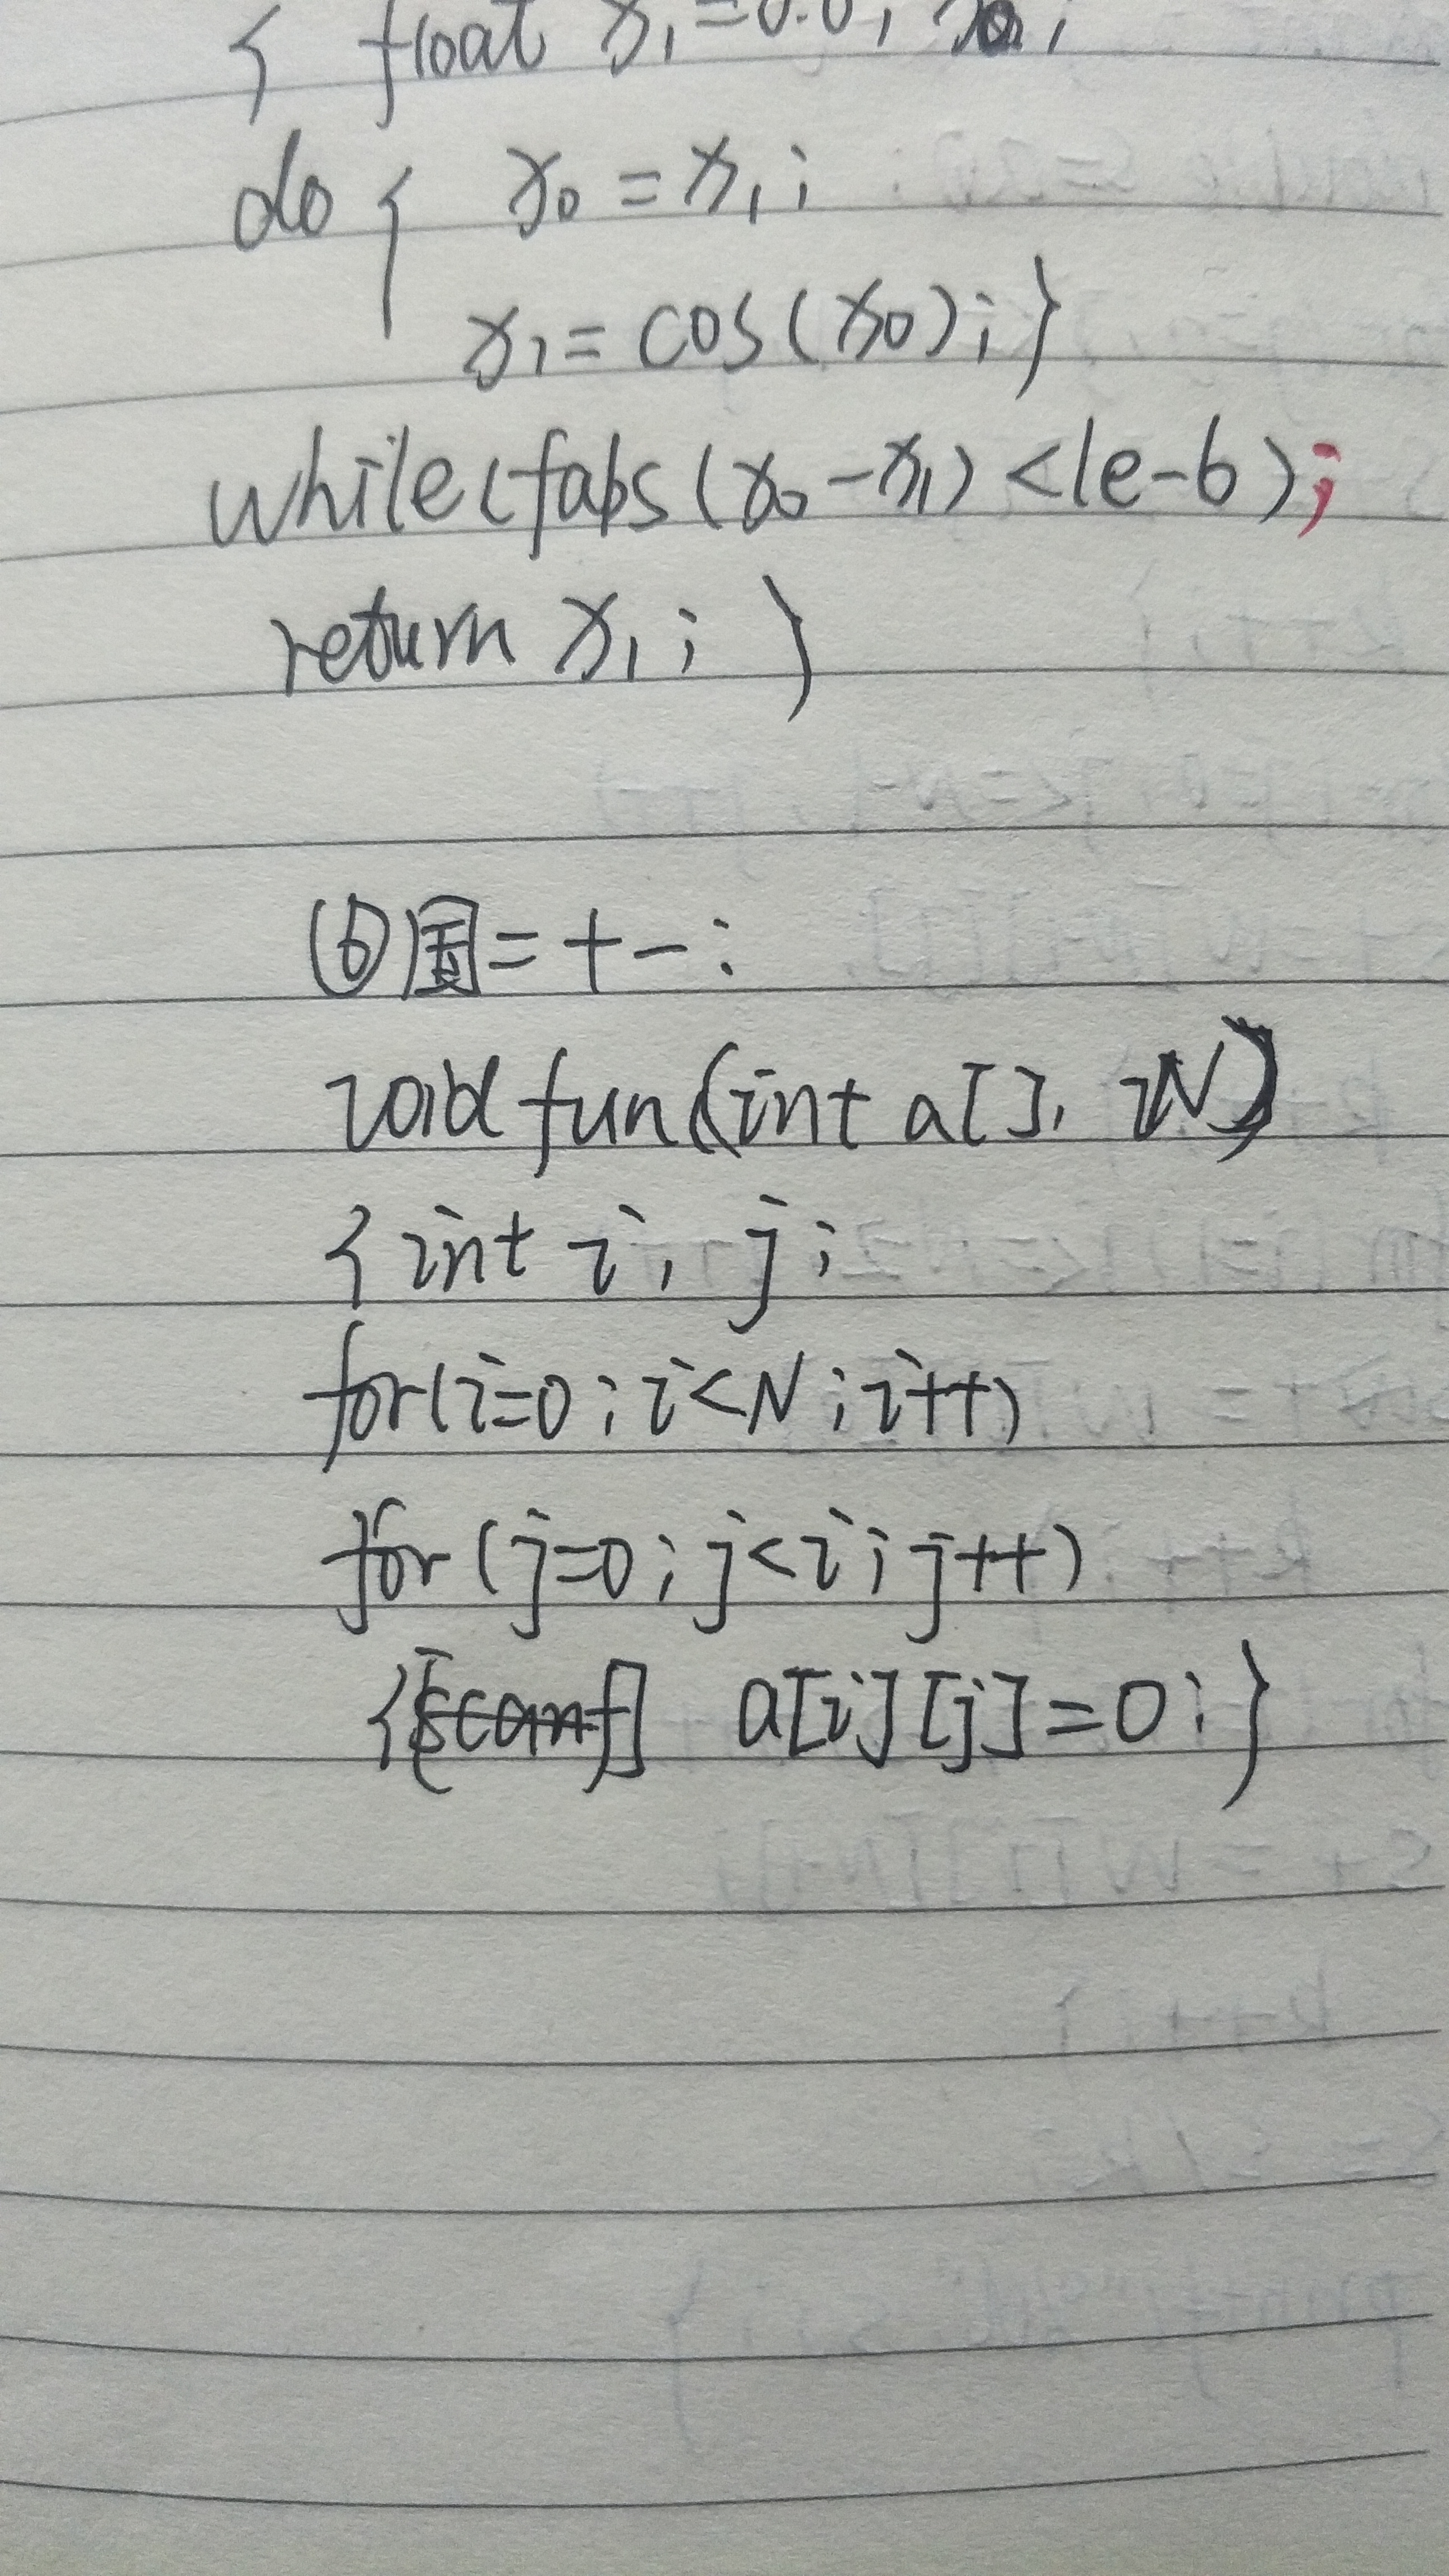 { float x1=0.0, x0;
do { x0 = x1;
x1 = cos(x0); }
while(fabs(x0-x1)<1e-6);
return x1; }
= 十一:
void fun(int a[], N)
{ int i, j;
for(i=0; i<N; i++)
for(j=0; j<i; j++)
{ scanf a[i][j]=0; }